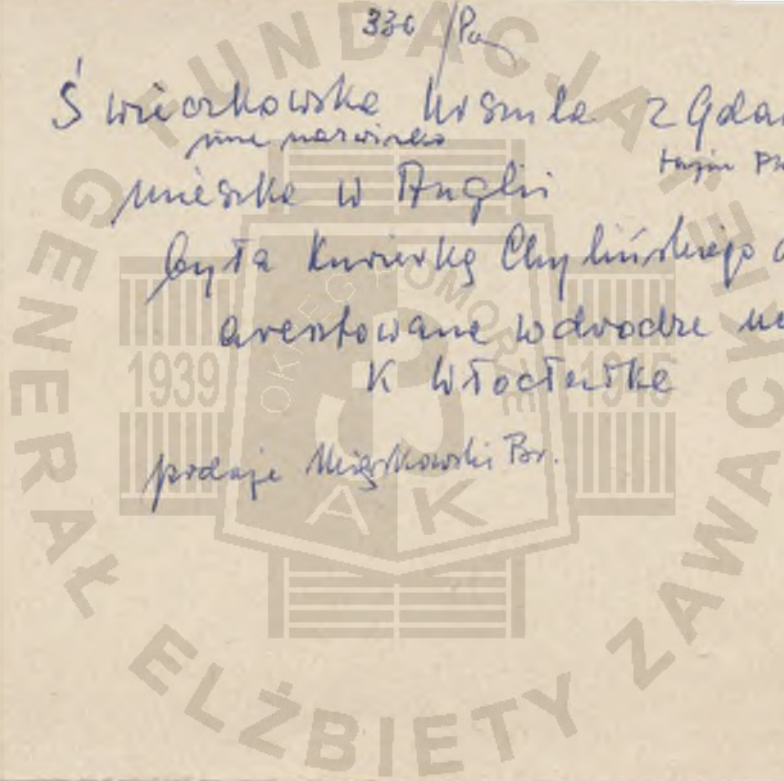 336/Pom
Świeczkowska Urszula z Gdań
inne nazwisko
mieszka w Anglii
była kurierką Chylińskiego
aresztowana w drodze
K Włocławka
podaje Mięskowski Br.
FUNDACJA GENERAŁ ELŻBIETY ZAWACKIEJ
OKRĘG POMORZE
1939
1945
AK